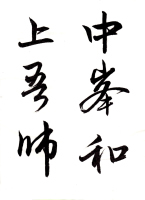 中峯和
上吾师